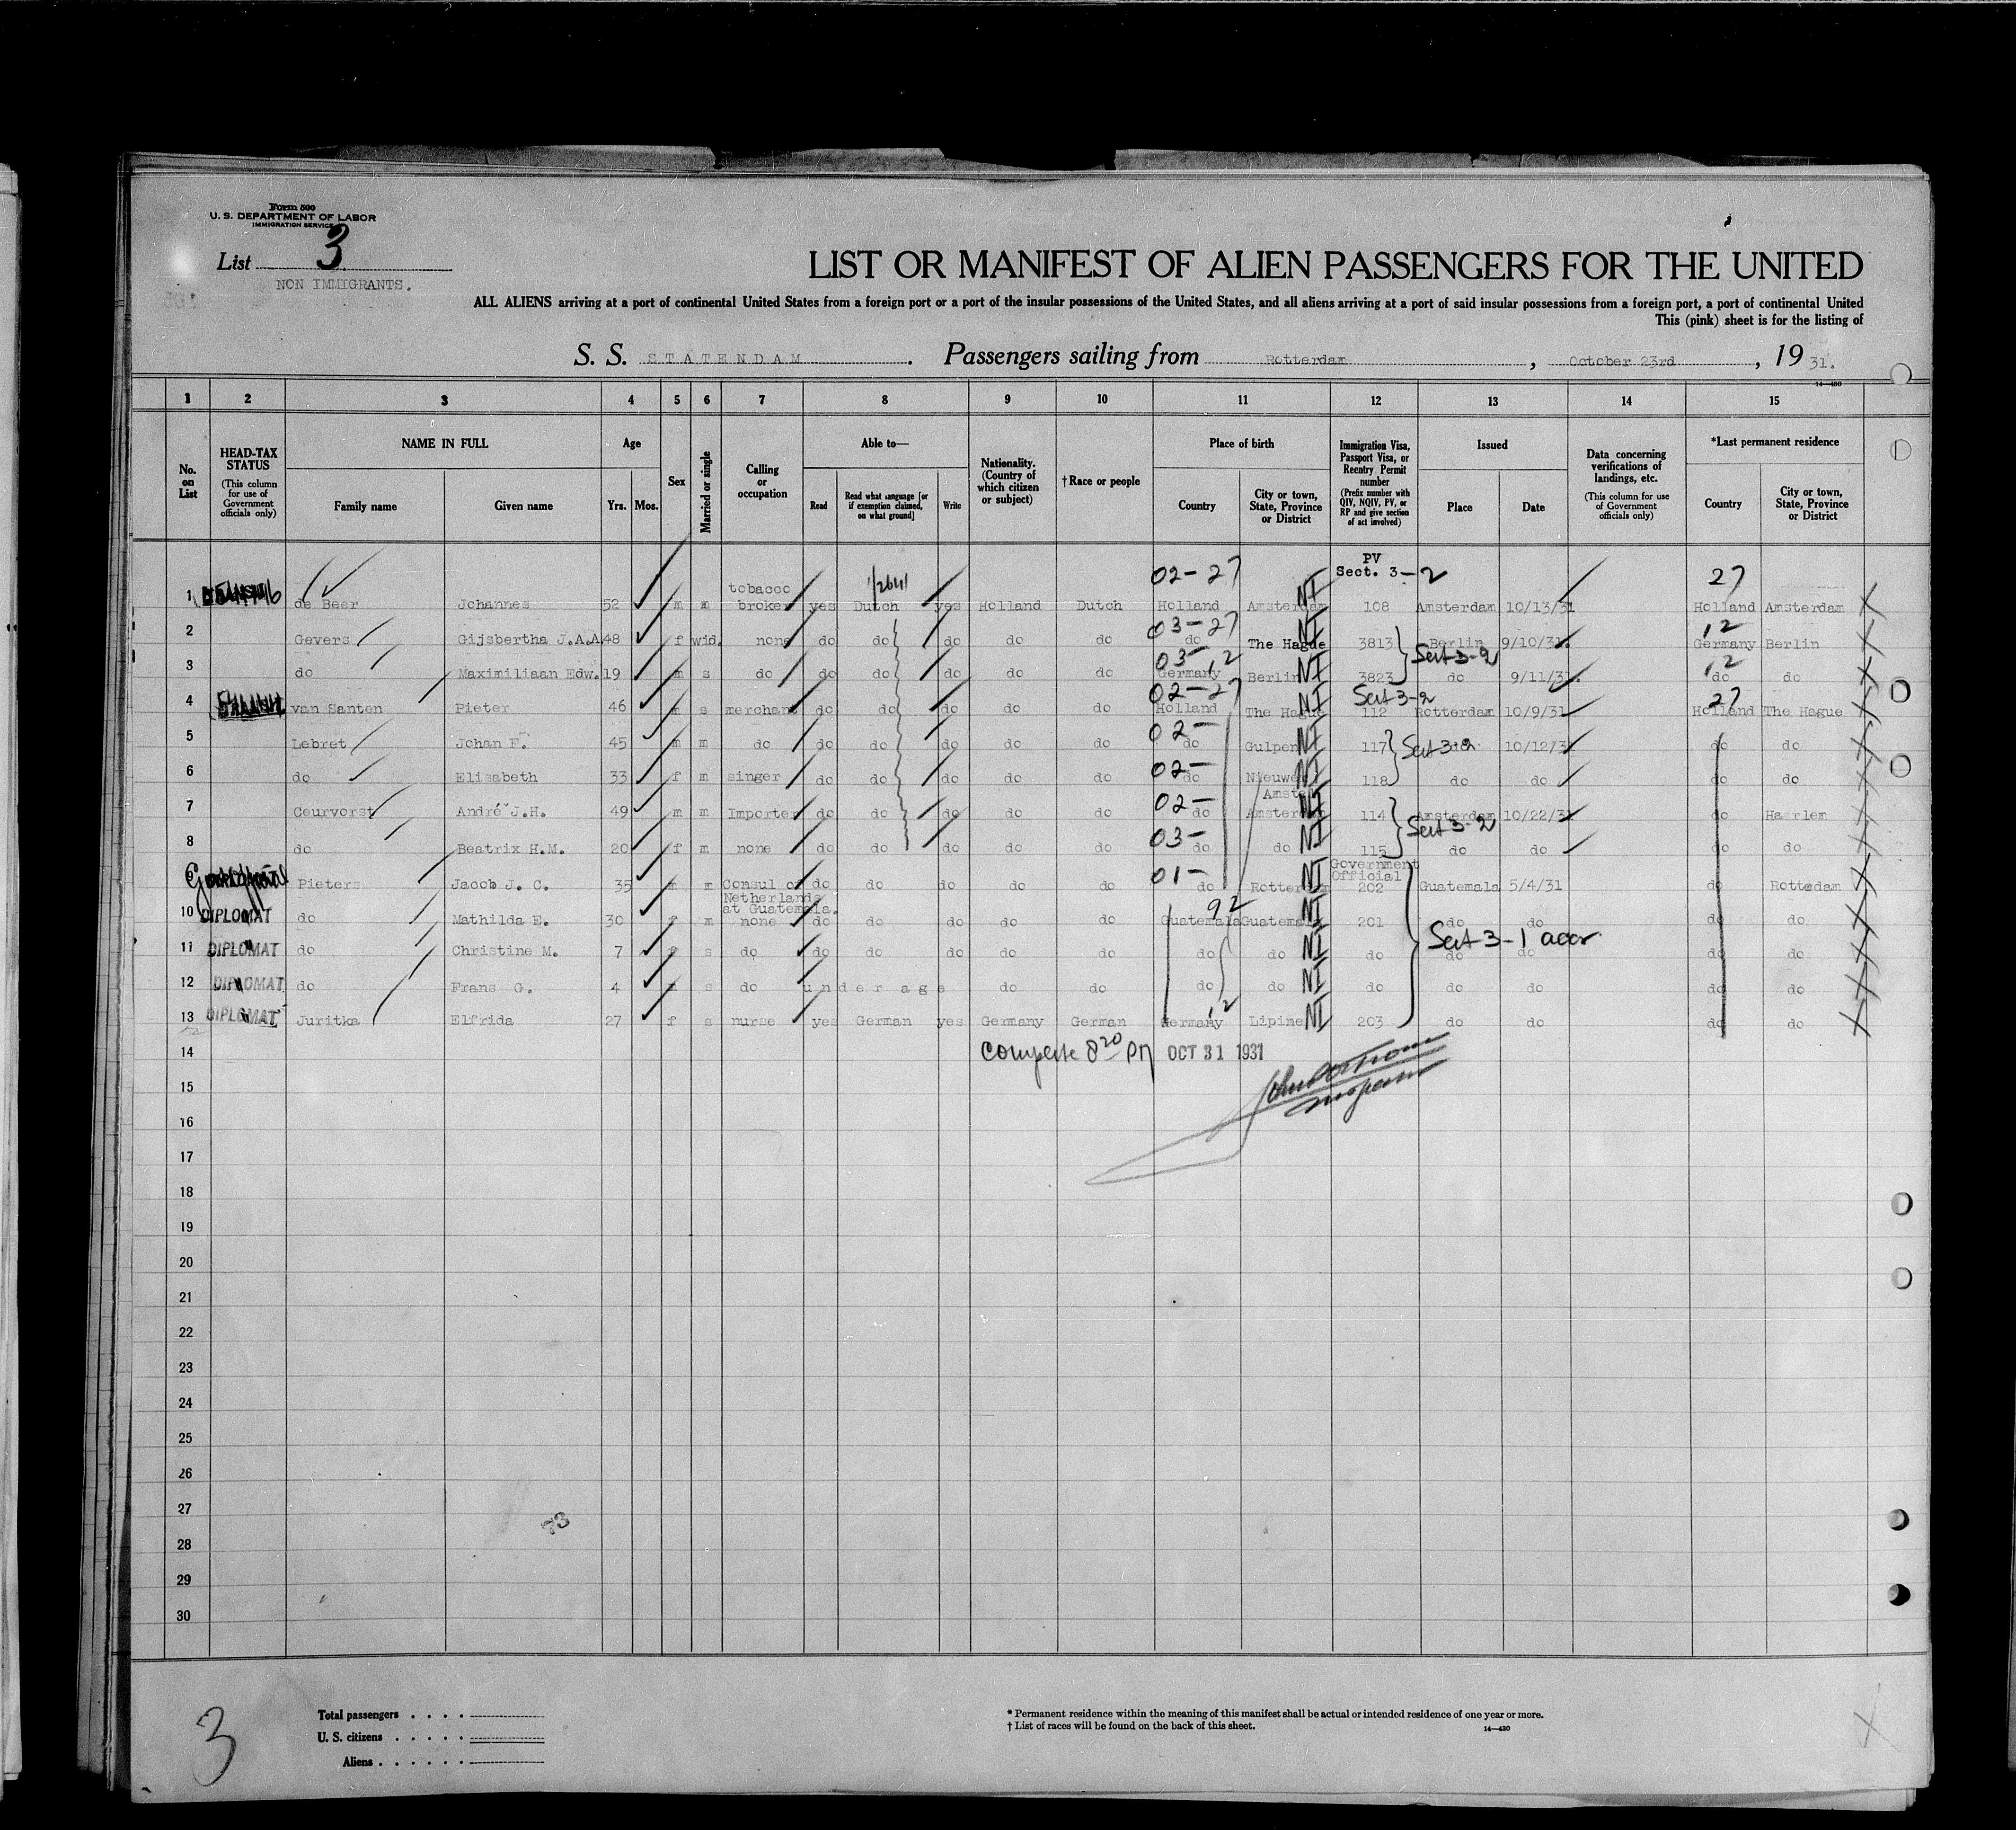 Form 500
U. S. DEPARTMENT OF LABOR
IMMIGRATION SERVICE
List 3
NON IMMIGRANTS.
LIST OR MANIFEST OF ALIEN PASSENGERS FOR THE UNITED
ALL ALIENS arriving at a port of continental United States from a foreign port or a port of the insular possessions of the United States, and all aliens arriving at a port of said insular possessions from a foreign port, a port of continental United
This (pink) sheet is for the listing of
S. S. STATENDAM. Passengers sailing from Rotterdam, October 23rd, 1931.
14—430
1 2 3 4 5 6 7 8 9 10 11 12 13 14 15
No. on List
HEAD-TAX STATUS (This column for use of Government officials only)
NAME IN FULL
Family name
Given name
Age
Yrs. Mos.
Sex
Married or single
Calling or occupation
Able to—
Read
Read what language [or if exemption claimed, on what ground]
Write
Nationality. (Country of which citizen or subject)
†Race or people
Place of birth
Country
City or town, State, Province or District
Immigration Visa, Passport Visa, or Reentry Permit number (Prefix number with QIV, NQIV, PV, or RP and give section of act involved)
Issued
Place
Date
Data concerning verifications of landings, etc. (This column for use of Government officials only)
*Last permanent residence
Country
City or town, State, Province or District
02-27 PV Sect. 3-2 27
1 de Beer Johannes 52 m m tobacco broker yes Dutch yes Holland Dutch Holland Amsterdam NI 108 Amsterdam 10/13/31 Holland Amsterdam
03-27 12
2 Gevers Gijsbertha J.A.A. 48 f wid. none do do do do do do The Hague NI 3813 Berlin 9/10/31. Germany Berlin
03-12 Sect 3-2 12
3 do Maximiliaan Edw. 19 m s do do do do do do Germany Berlin NI 3823 do 9/11/31. do do
02-27 Sect 3-2 27
4 van Santen Pieter 46 m s merchant do do do do do Holland The Hague NI 112 Rotterdam 10/9/31 Holland The Hague
02-
5 Lebret Johan F. 45 m m do do do do do do do Gulpen NI 117 Sect 3-2 do 10/12/31 do do
02-
6 do Elisabeth 33 f m singer do do do do do do Nieuwer Amstel NI 118 do do do do
02-
7 Ceurvorst André J.H. 49 m m Importer do do do do do do Amsterdam NI 114 Amsterdam 10/22/31 do Haarlem
03- Sect 3-2
8 do Beatrix H.M. 20 f m none do do do do do do do NI 115 do do do do
01- Government Official
9 Pieters Jacob J. C. 35 m m Consul of Netherlands at Guatemala. do do do do do do Rotterdam NI 202 Guatemala 5/4/31 do Rottedam
92
10 DIPLOMAT do Mathilda E. 30 f m none do do do do do Guatemala Guatemala NI 201 do do do do
Sect 3-1 accr
11 DIPLOMAT do Christine M. 7 f s do do do do do do do do NI do do do do do
12 DIPLOMAT do Frans G. 4 m s do under age do do do do NI do do do do do
12
13 DIPLOMAT Juritka Elfrida 27 f s nurse yes German yes Germany German Germany Lipine NI 203 do do do do
14 Complete 8 20 PM OCT 31 1931
15
16
17
18
19
20
21
22
23
24
25
26
27
73
28
29
30
3
Total passengers
U. S. citizens
Aliens
* Permanent residence within the meaning of this manifest shall be actual or intended residence of one year or more.
† List of races will be found on the back of this sheet.
14—430